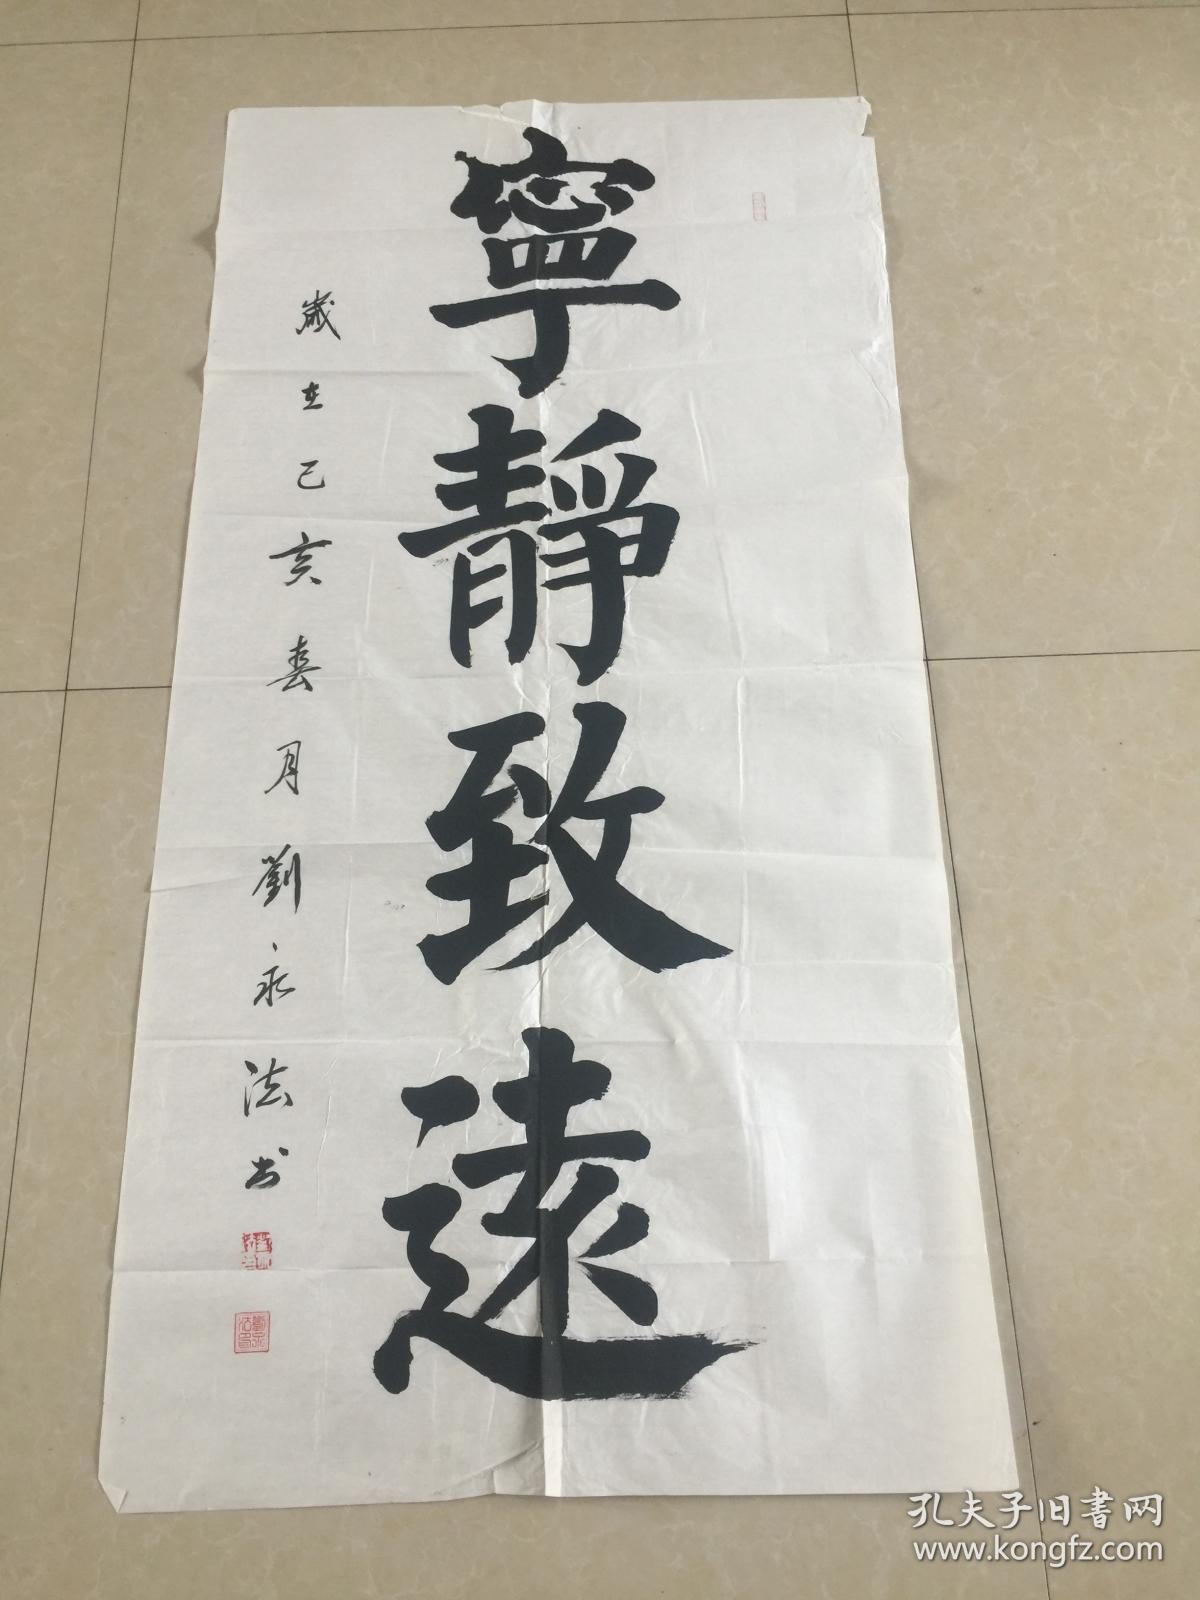 寧靜致遠
歲在己亥春月劉永法书
孔夫子旧書网
www.kongfz.com